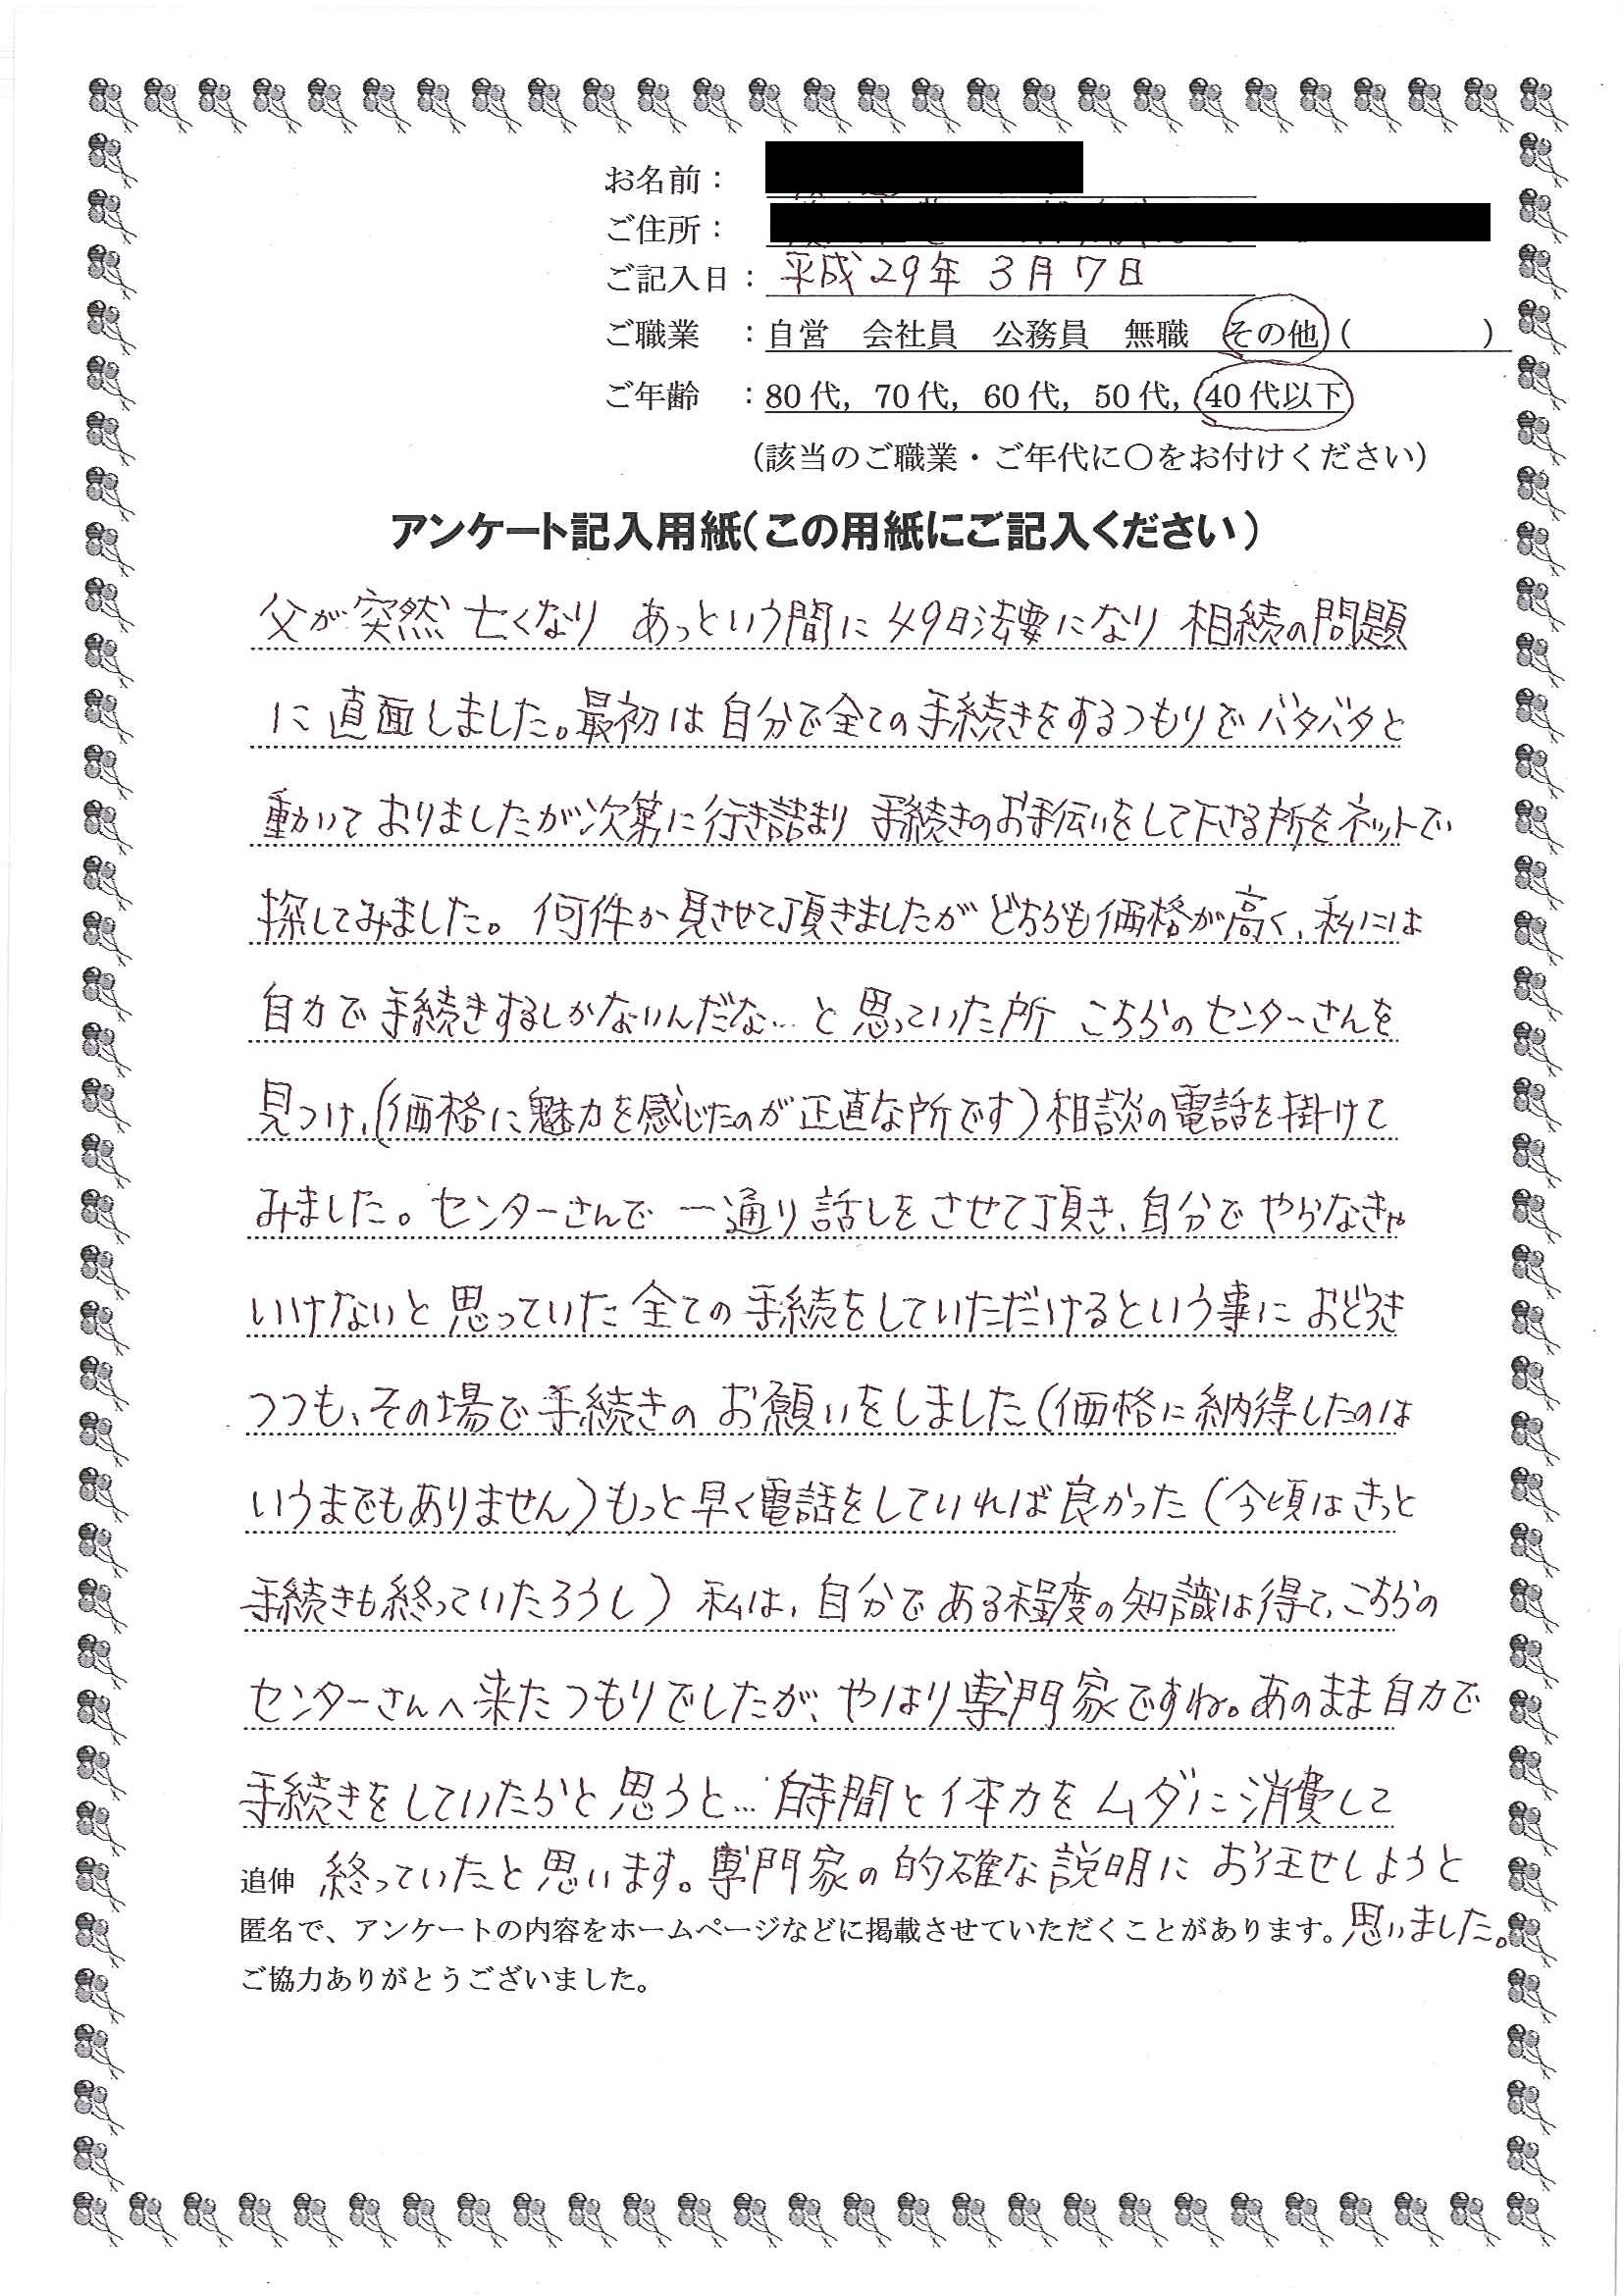 お名前：
ご住所：
ご記入日：平成29年 3月7日
ご職業　：自営　会社員　公務員　無職　その他（　　　　）
ご年齢　：80代，70代，60代，50代，40代以下
（該当のご職業・ご年代に〇をお付けください）
アンケート記入用紙（この用紙にご記入ください）
父が突然 亡くなり あっという間に 49日法要になり 相続の問題
に直面しました。最初は自分で全ての手続きをするつもりでバタバタと
動いておりましたが次第に行き詰まり 手続きのお手伝いをして下さる所をネットで
探してみました。何件か見させて頂きましたが どちらも価格が高く、私には
自力で手続きするしかないんだな… と思っていた所 こちらのセンターさんを
見つけ、（価格に魅力を感じたのが正直な所です）相談の電話を掛けて
みました。センターさんで 一通り話しをさせて頂き、自分で やらなきゃ
いけないと思っていた全ての手続をしていただけるという事に おどろき
つつも、その場で手続きの お願いをしました（価格に納得したのは
いうまでもありません）もっと早く電話をしていれば良かった（今頃はきっと
手続きも終っていたろうし）私は、自分で ある程度の知識は得て、こちらの
センターさんへ来たつもりでしたが、やはり専門家ですね。あのまま自力で
手続きをしていたらと思うと… 時間と体力をムダに消費して
追伸 終っていたと思います。専門家の的確な説明に お任せしようと
匿名で、アンケートの内容をホームページなどに掲載させていただくことがあります。思いました。
ご協力ありがとうございました。